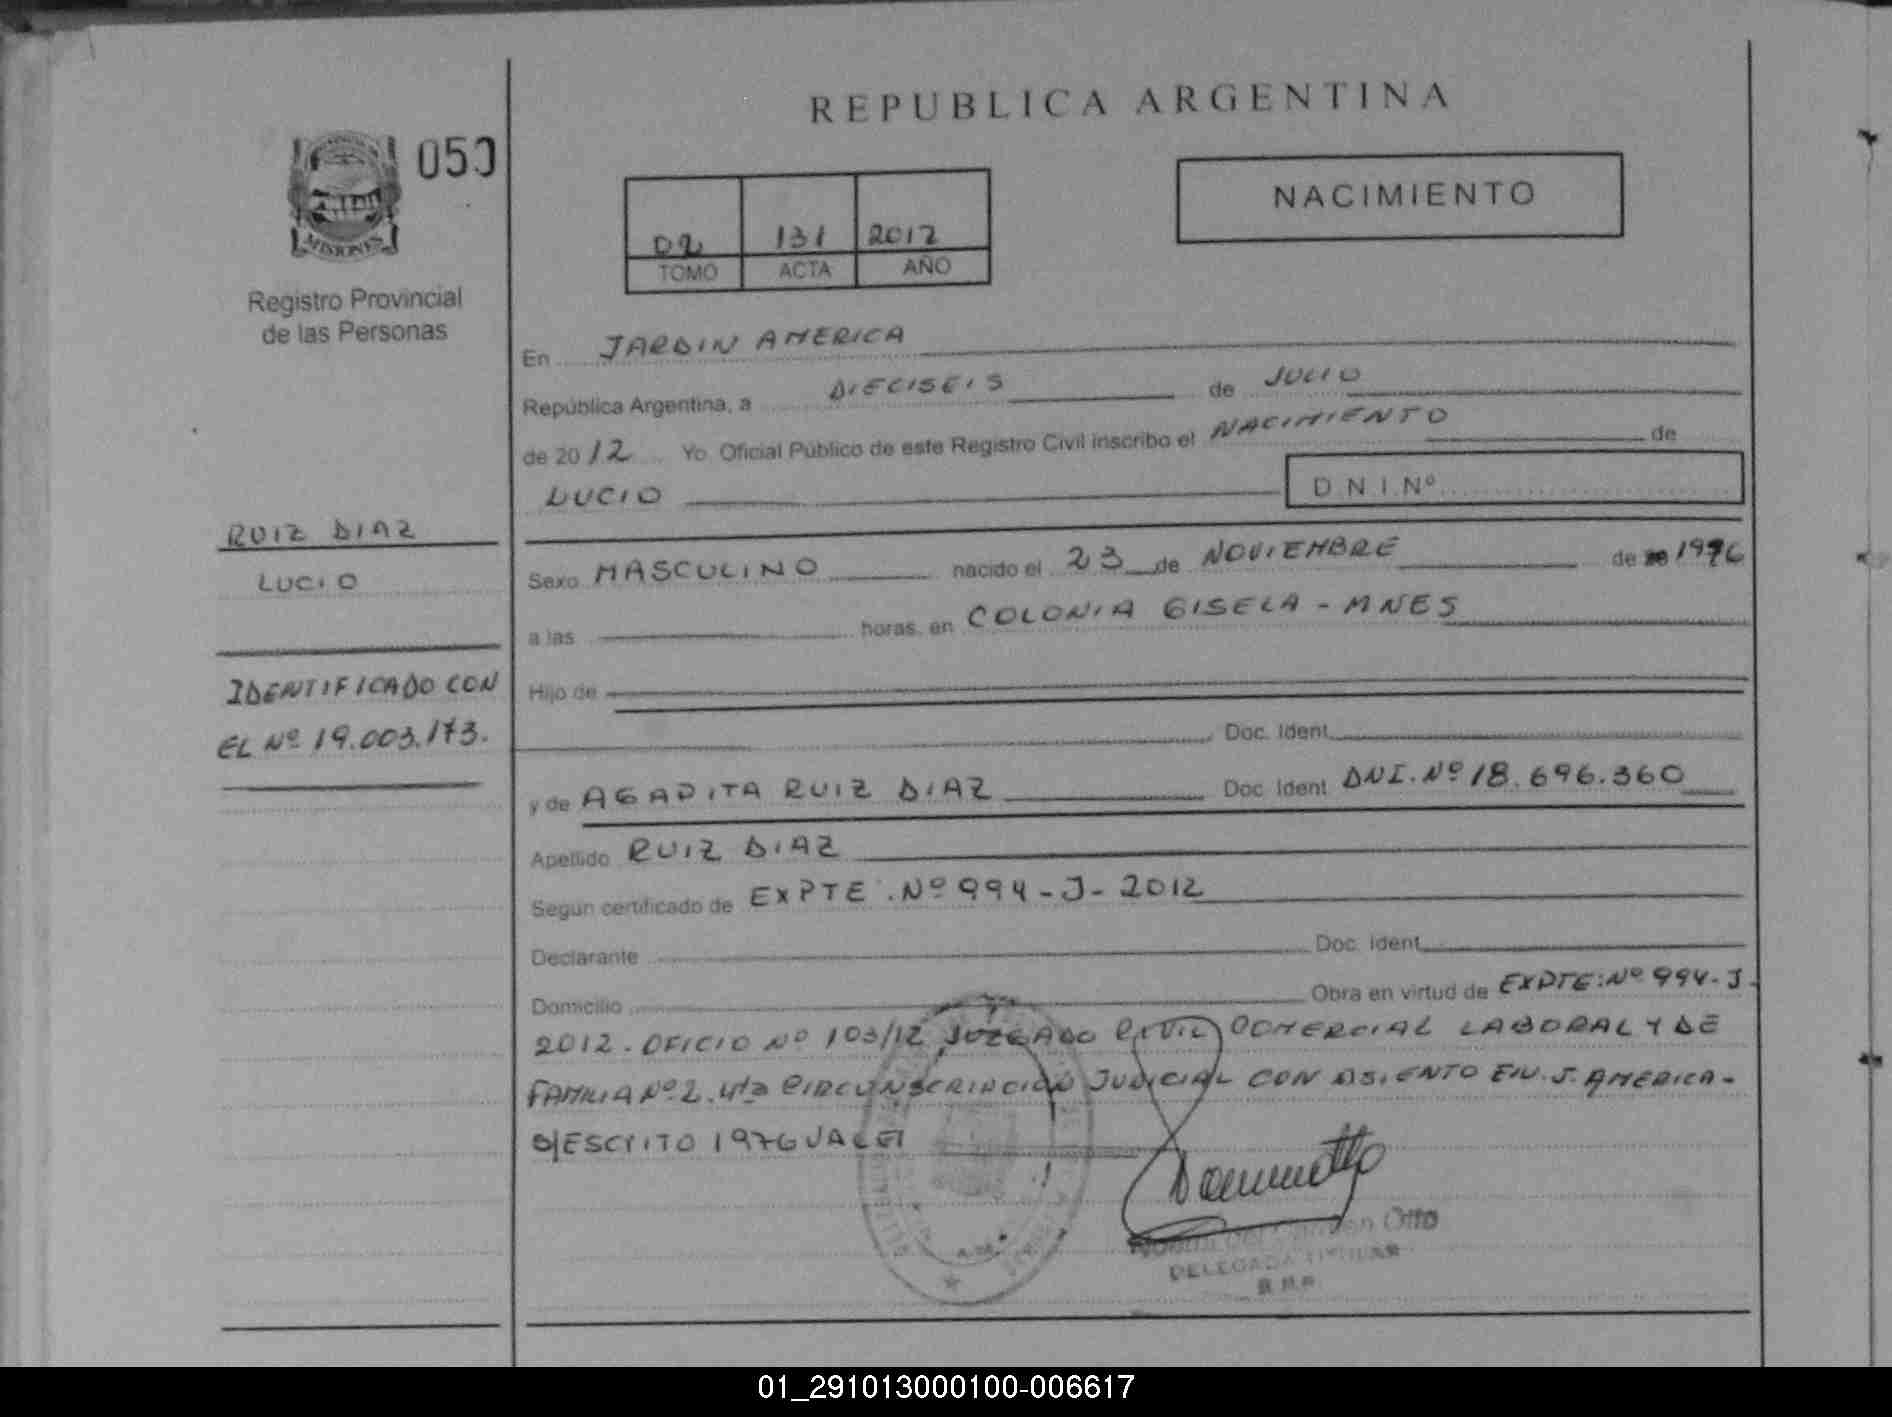 REPUBLICA ARGENTINA
MISIONES
Registro Provincial
de las Personas
D2 131 2012
TOMO ACTA AÑO
NACIMIENTO
En JARDIN AMERICA
República Argentina, a DIECISEIS de JULIO
de 2012 Yo Oficial Público de este Registro Civil inscribo el NACIMIENTO de
LUCIO D.N.I.Nº
RUIZ DIAZ
LUCIO
IDENTIFICADO CON
EL Nº 19.003.173.
Sexo MASCULINO nacido el 23 de NOVIEMBRE de 1976
a las horas, en COLONIA GISELA - MNES
Hijo de
Doc. Ident.
y de AGAPITA RUIZ DIAZ Doc. Ident. DNI. Nº 18.696.360
Apellido RUIZ DIAZ
Según certificado de EXPTE. Nº 994-J-2012
Declarante Doc. Ident.
Domicilio Obra en virtud de EXPTE: Nº 994-J-
2012. OFICIO Nº 103/12 JUZGADO CIVIL COMERCIAL LABORAL Y DE
FAMILIA Nº 2. 4ta CIRCUNSCRIPCION JUDICIAL CON ASIENTO EN J. AMERICA-
S/ESCRITO 1976 VALE
Otto
DELEGADA TITULAR
01_291013000100-006617